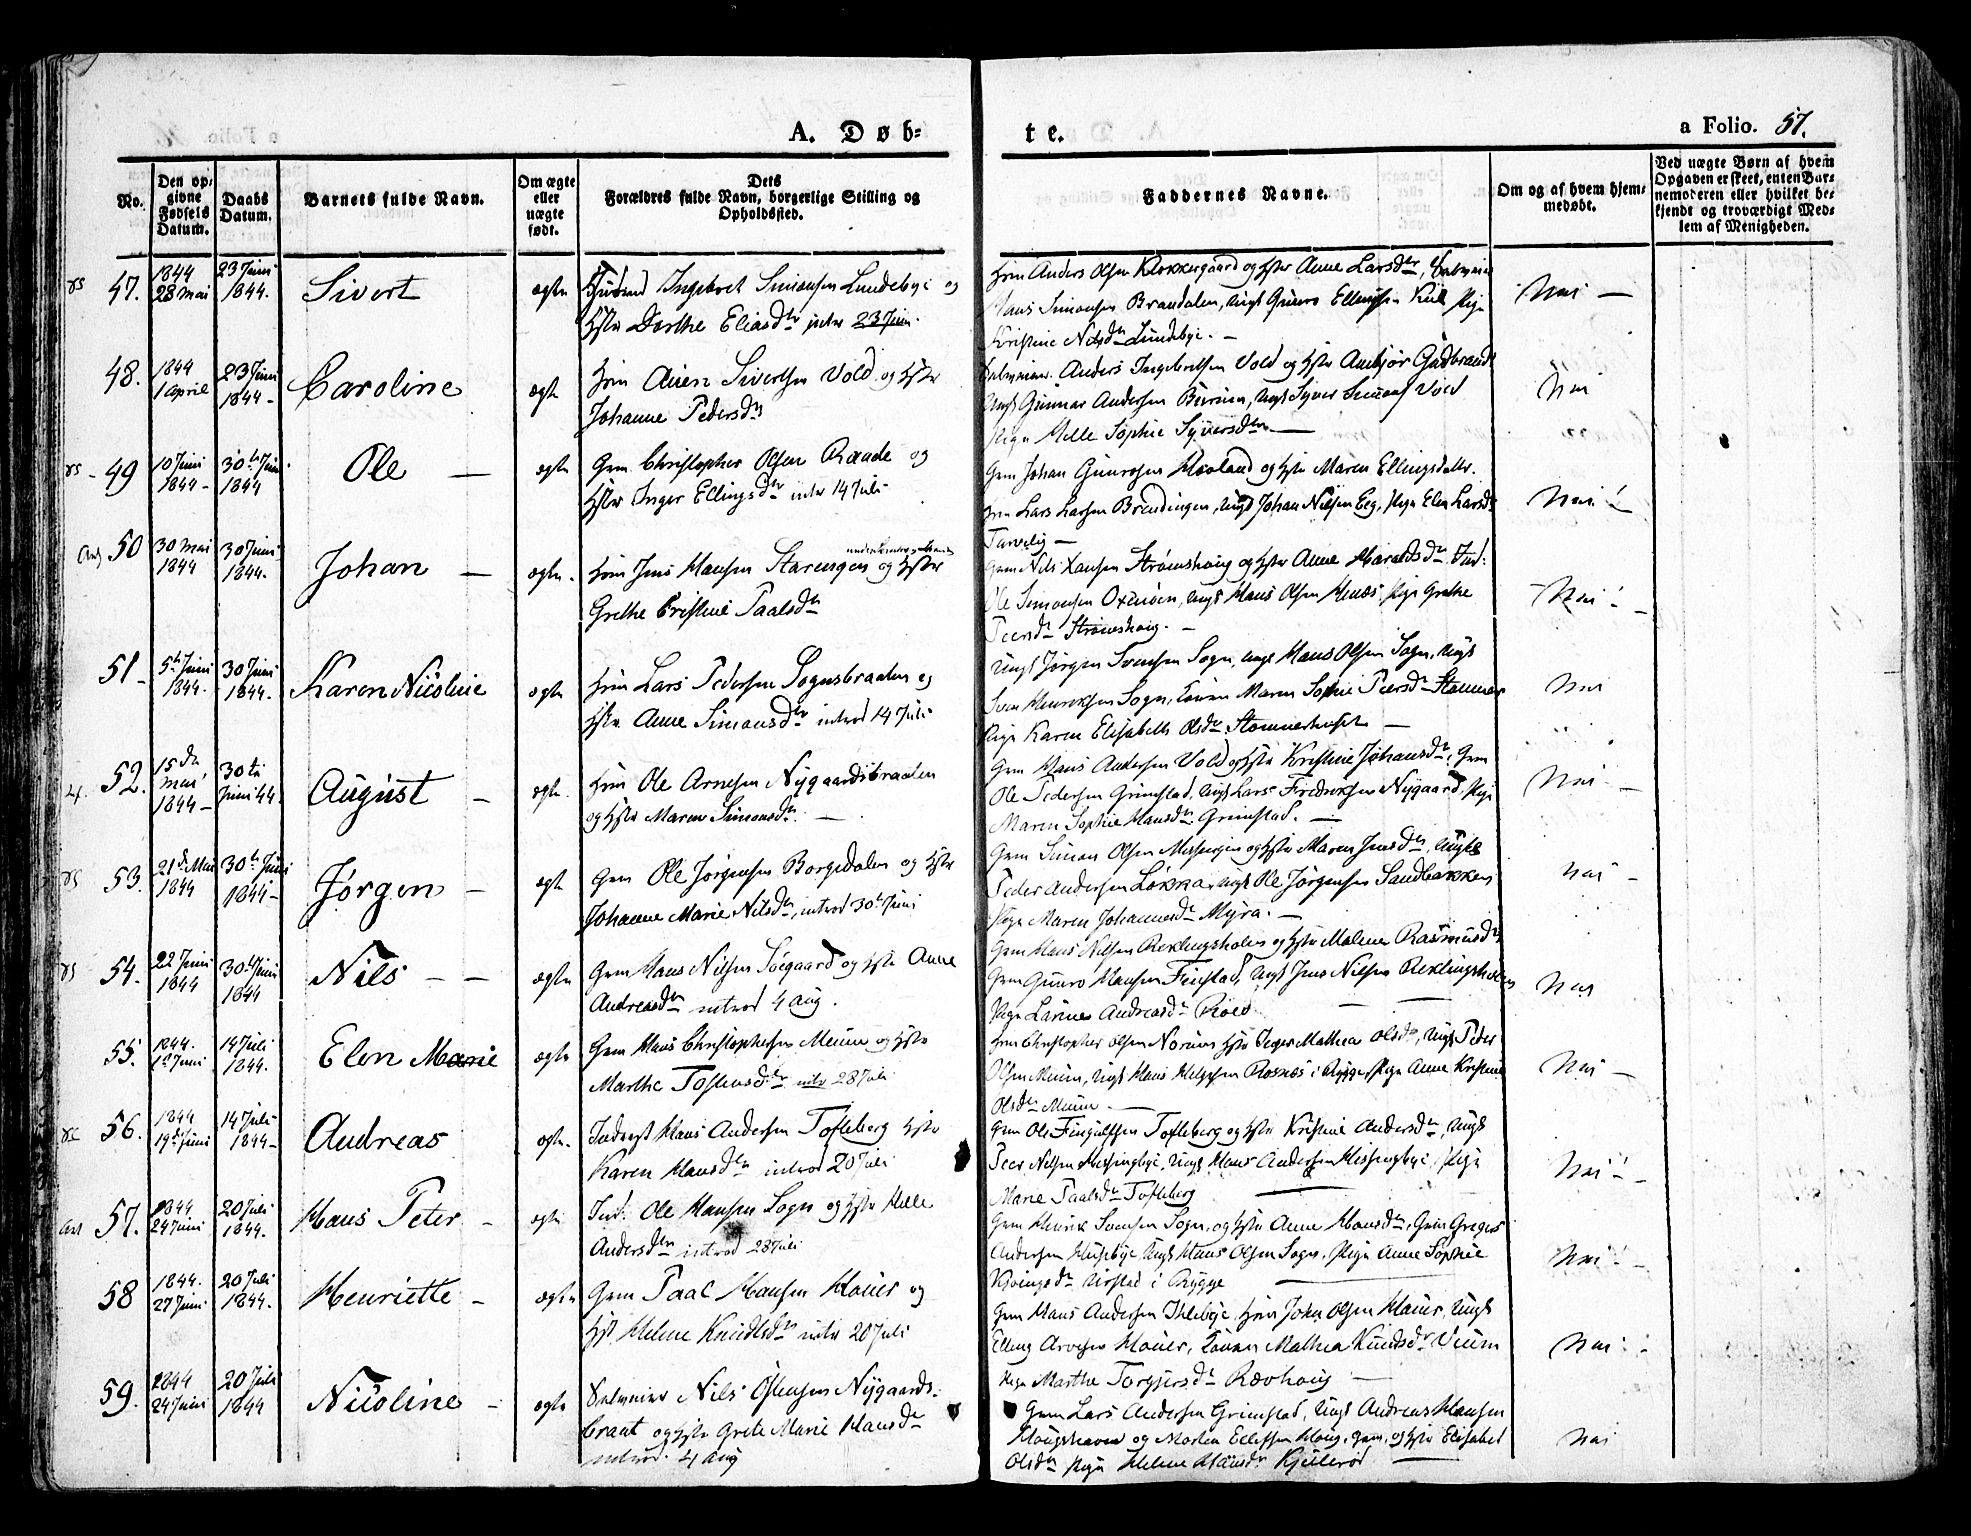 A. Døb=
te.
a Folio. 57.
No.
Den op=
givne
Fødsels
Datum.
Daabs
Datum.
Barnets fulde Navn.
Om ægte
eller
uægte
født.
Dets
Forældres fulde Navn, borgerlige Stilling og
Opholdssted.
Faddernes Navne.
Om og af hvem hjem=
medøbt.
Ved uægte Børn af hvem
Opgaven er skeet, enten Bar=
nemoderen eller hvilket be=
kjendt og troværdigt Med=
lem af Menigheden.
47. 1844 28 mai 23 Juni 1844. Sivert ægte Ingebret Simonsen Lundebye og
Hstr Dorthe Eliasdtr intr 23 Juni.
Hmd Anders Olsen Klokkergaard og Hstr Anne Larsdtr,
Hans Simonsen Brandalen, Ungk Gunro Ellingsen Pige
Kristine Nilsdtr Lundebye. Nei —
48. 1844 1 April 23 Juni 1844 - Caroline ægte Hmd Auen Sivertsen Vold og Hstr
Johanne Pedersdtr
Anders Ingebretsen Vold og Hstr Ambjør Gudbrands
Ungk Gunnar Andersen Ungk Syver Simons Vold
Pige Helle Sophie Syversdtr — Nei
49 10 Juni 1844 - 30te Juni 1844 Ole — ægte Gm. Christopher Olsen Raade og
Hstr Inger Ellingsdtr intr 14 Juli
Gm Johan Gunrosen Hovland og Hstr Maren Ellingsdatter.
Hmd Lars Larsen Brendingen, Ungk Johan Nilsen Eeg, Pige Elen Larsd
Tarvelig — Nei
50 30 mai 1844 30 Juni 1844. Johan — ægte. Hmd Jens Hansen Starengen og Hstr
Grethe Cristine Paalsdtr
Gm Nils Hansen Strømshoug og Hstr Anne Haraldsdtr Ind.
Ole Simonsen Oxenøen, Ungk Hans Olsen Henæs, Pige Grethe
Peersdtr Strømshoug. — Nei
51 - 5te Juni 1844. 30 Juni 1844. Karen Nicoline ægte Hmd Lars Pedersen Sognsbraaten og
Hstr Anne Simonsdtr introd 14 Juli
Ungk Jørgen Svensen Sogn, Ungk Hans Olsen Sogn, Ungk
Sven Henriksen Sogn, Konen Maren Sophie Peersdtr Stommer
Pige Karen Elisabeth Olsdtr Stommerhuset — Nei
52. 15de mai 1844 - 30te Juni 44. August — ægte. Hmd Ole Arnesen Nygaardsbraaten
og Hstr Maren Simonsdtr. —
Gm Hans Andersen Vold og Hstr Kristine Johansdtr, Gm
Ole Pedersen Grimstad, Ungk Lars Fredriksen Nygaard, Pige
Maren Sophie Hansdtr Grimstad. — Nei —
53. 21de Mai 1844 30te Juni 1844 - Jørgen — ægte Gm Ole Jørgensen Borgedalen og Hstr
Johanne Marie Nilsdtr, introd 30te Juni
Gm Simon Olsen Missingen og Hstr Maren Jensdtr, Ungk
Peder Andersen Løkka, Ungk Ole Jørgensen Sandbakken
Pige Maren Johannesdtr Myra. — Nei —
54. 22 Juni 1844 30te Juni 1844 Nils — — ægte Gm Hans Nilsen Søegaard og Hstr Anne
Andreasdtr introd 4 Aug.
Gm Hans Nilsen Reklingsholm og Hstr Malene Rasmusd
Gm Gunro Hansen Finstad, Ungk Jens Nilsen Reklingsholm
Pige Larine Andreasdtr Roed Nei
55. 1844. 1te Juni 14 Juli 1844. Elen Marie ægte Gm Hans Christophersen Meum og Hstr
Marthe Tostensdtr intr 28 Juli
Hmd Christopher Olsen Norum Hstr Inger Mathea Olsd, Ungk Peder
Olsen Meum, Ungk Hans Helgesen Rosnæs i Rygge, Pige Anne Kristine
Olsdtr Meum — Nei —
56. 1844 19de Juni 14 Juli 1844 - Andreas ægte. Inderst Hans Andersen Tofteberg Hstr
Karen Hansdtr introd 20 Juli
Gm Ole Fingalssen Tofteberg og Hstr Kristine Andersdtr, Ungk
Peer Nilsen Missingbye, Ungk Hans Andersen Missingbye, Pige
Marie Paalsdtr Tofteberg — Nei
57. 1844 24 Juni 20 Juli 1844. Hans Peter — ægte Ind. Ole Hansen Sogn og Hstr Helle
Andersdtr introd 28 Juli
Gm Henrik Svensen Sogn, og Hstr Anne Hansdtr, Gm Gregers
Andersen Husebye Ungk Hans Olsen Sogn, Pige Anne Sophie
Virstad i Rygge — Nei
58 1844. 27 Juni 20 Juli 1844. Henriette — ægte Gm Paal Hansen Houer og
Hst Helene Knudtsdtr intr 20 Juli
Gm Hans Andersen Ihlebye, Hmd John Olsen Houer, Ungk
Elling Arvesen Houer, Konen Mathea Knudsdtr Veum
Pige Marthe Torgersdtr Rævhoug — Nei
59. 1844 24 Juni 20 Juli 1844 Nicoline — ægte Nils Ostensen Nygaards-
braat og Hstr Grete Marie Hansdtr
introd. 4 Aug
Gm Lars Andersen Grimstad, Ungk Andreas Hansen
Hougshaven og Morten Ellefsen Houg, Gm. og Hstr Elisabet
Olsdtr Pige Helene Hansdtr Kjellerød — Nei